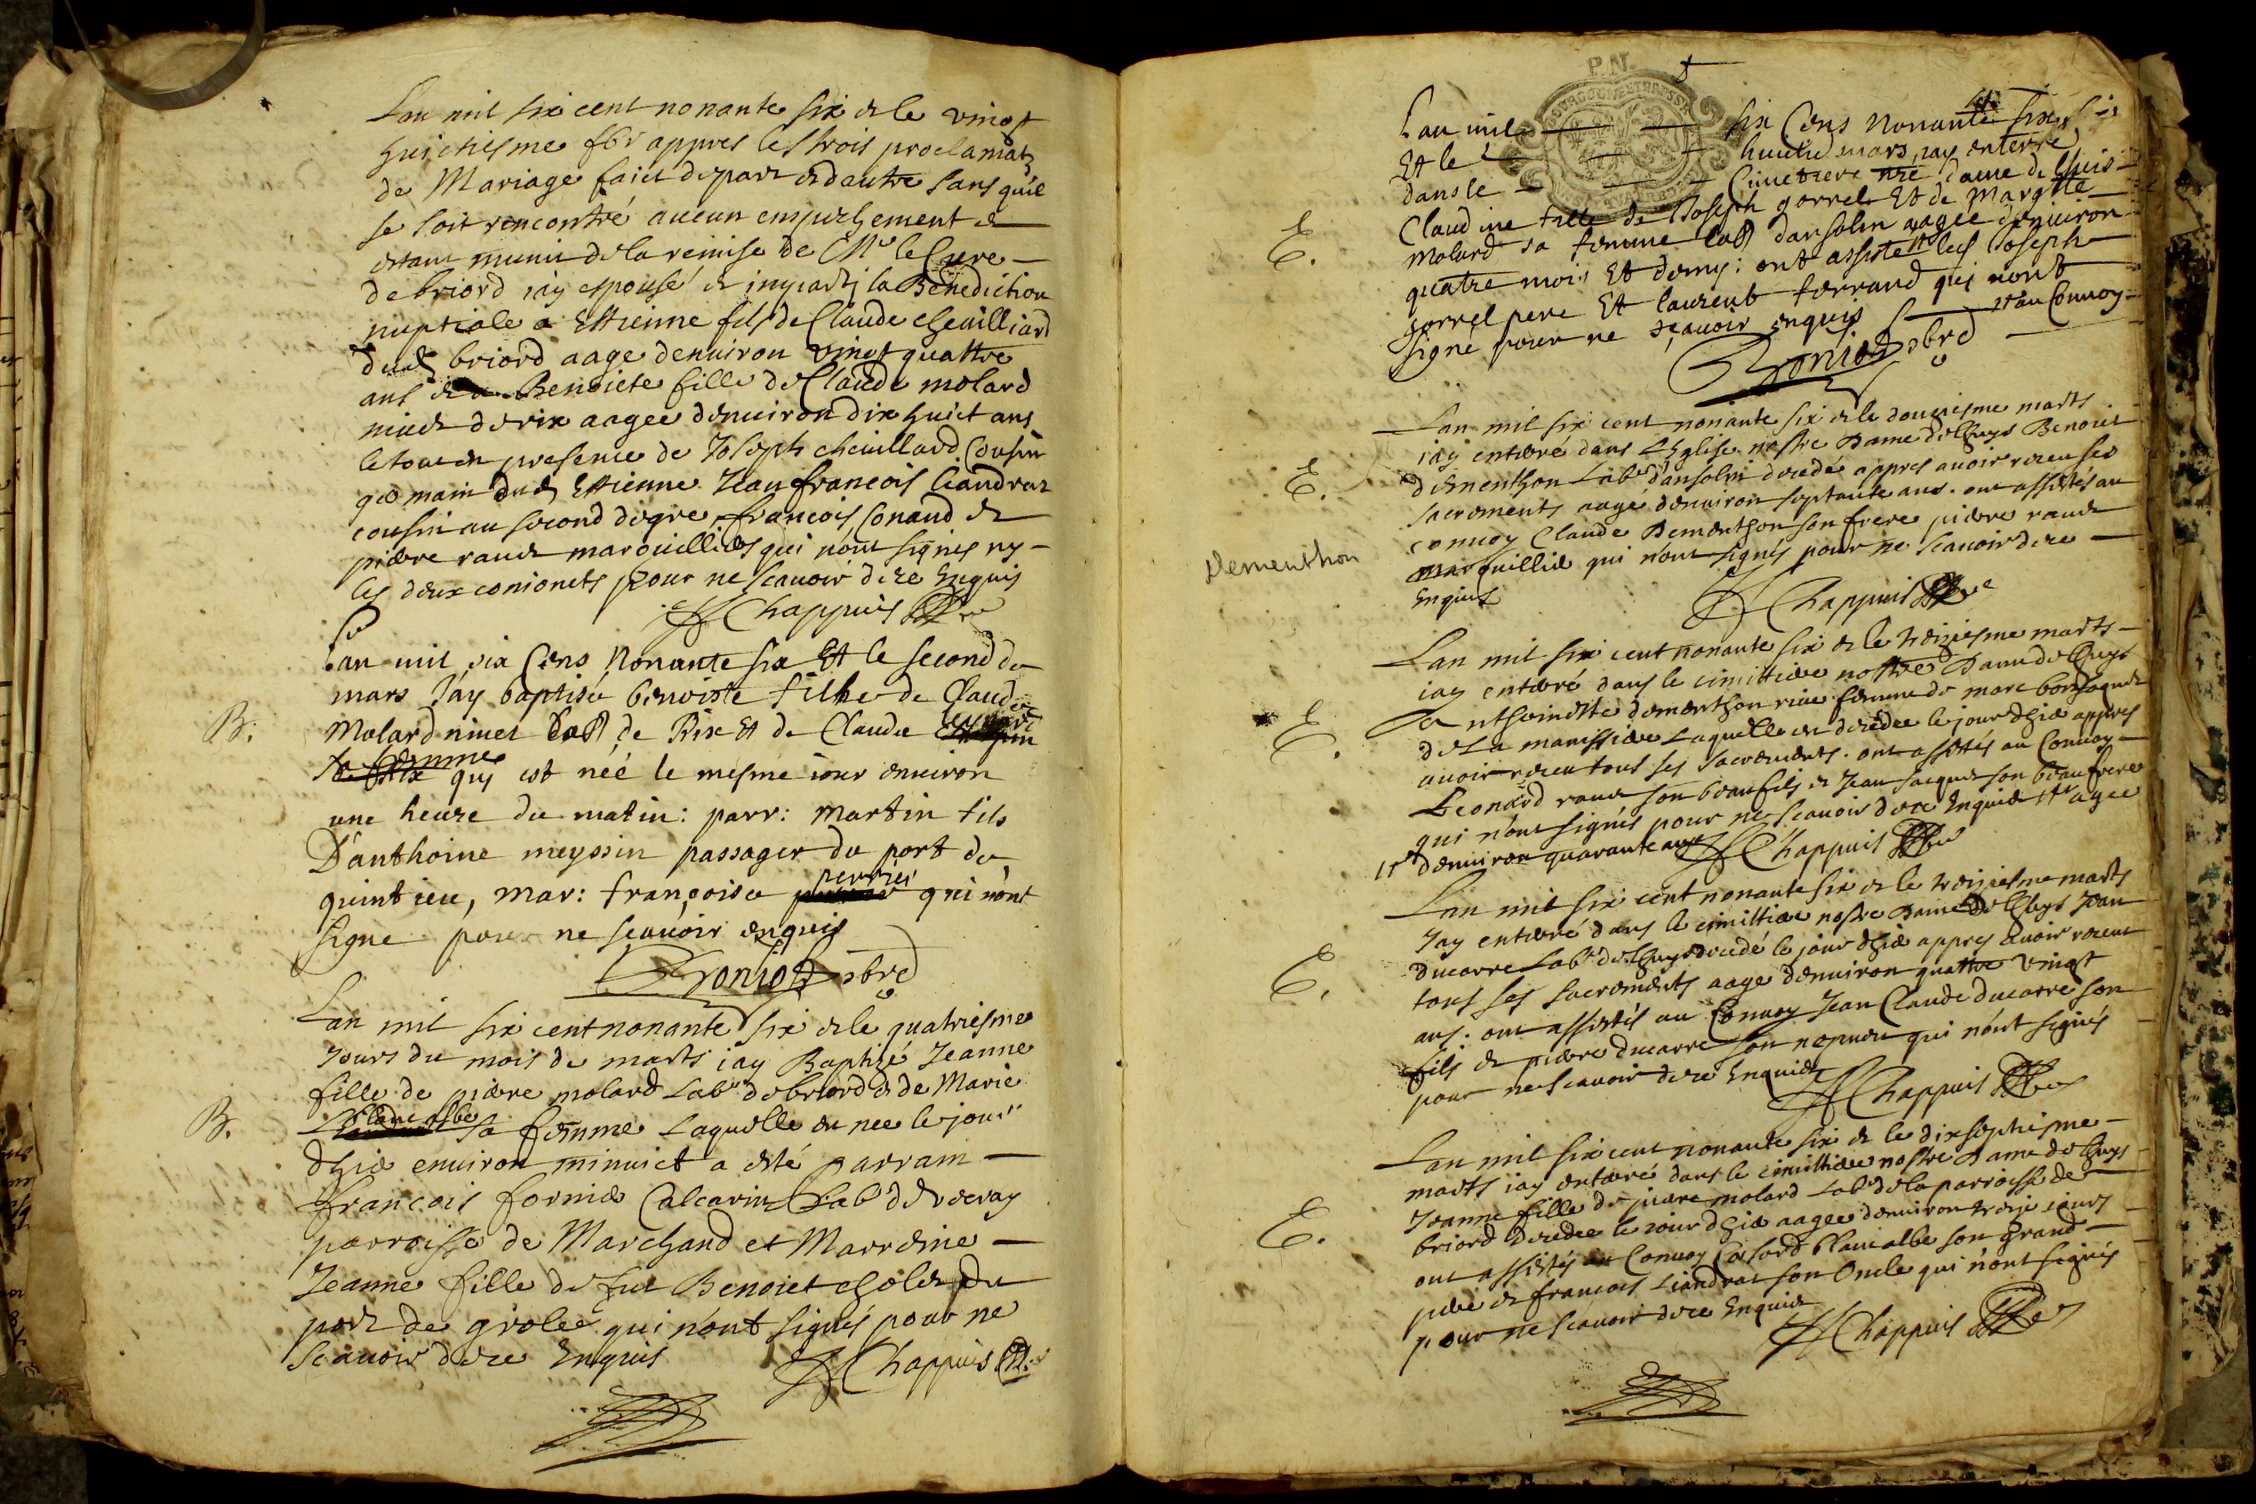 Lan mil six cent nonante six et le vingt
huictiesme fbr appres les trois proclamatz
de Mariage faict de part et dautre sans quil
se soit rencontré aucun empeschement et
estant muni de la remise de Mr le Cure
de briord iay espousé et imparti la Benediction
nuptiale a Estienne fils de Claude cheuilliard
dud briord aage denuiron vingt quattre
ans et a Benoicte fille de Claude molard
niuet de rix aagee denuiron dix huict ans
le tout en presence de Joseph cheuillard Cousin
germain dud Estienne Jean françois liandrat
cousin au second degre françois Conand et
pierre raud marguilliers qui nont signes ny
les deux conioncts pour ne scauoir de ce Enquis
Chappuis
Lan mil six Cens Nonante six Et le second de
mars J'ay baptisé benoiste fille de Claude
B. Molard niuet Lab de Rix Et de Claudie
sa femme qui est neé le mesme iour enuiron
une heure du matin: parr: martin fils
D'anthoine meyssin passager du port de
quintieu, mar: françoise perrier qui nont
signe pour ne scauoir enquis
Bronioz pbre
Lan mil six cent nonante six et le quatriesme
Jours du mois de marts iay Baptizé Jeanne
fille de pierre molard Lab de briord et de Marie
B. Blancalbe sa femme Laquelle est nee le jour
dhier enuiron minuict a esté parrain
françois fornier Calcarin Lab de
parroisse de Marchand et Marreine
Jeanne fille de feu Benoict cholet du
port de grolee qui n'ont signés pour ne
Scauoir de ce Enquis Chappuis
P.N.
Lan mil six Cens Nonante six
Et le huictie mars iay enterré
dans le Cimetiere nre dame de lhuis
E. Claudine fille de Joseph gorrel Et de Margtte
Molard sa femme lab dansolin aagee denuiron
quatre mois Et demy: ont assisté les Joseph
gorrel pere Et laurent ferrand qui nont
signe pour ne sçauoir enquis au Conuoy
Bronioz pbre
Lan mil six cent nonante six et le douziesme marts
iay enterré dans lEglise nostre Dame de lhuys Benoict
E. dementhon Lab d'ansolin decedé appres auoir receu ses
sacrements aagé denuiron septante ans. ont assistés au
conuoy Claude Dementhon son frere pierre raud
Dementhon
marguillier qui n'ont signés pour ne Scauoir de ce
Enquis Chappuis
Lan mil six cent nonante six et le treiziesme marts
iay enterré dans le cimittiere nostre Dame de lhuys
E. Anthoinette dementhon femme de marc
de La Laquelle est decedee le jour dhier appres
auoir receu tous ses sacrements. ont assistés au Conuoy
Leonard raud son beaufils et Jean Jacques son beaufrere
qui n'ont signés pour ne Scauoir de ce Enquis agee
denuiron quarante ans Chappuis
Lan mil six cent nonante six et le treiziesme marts
Jay enterré dans le cimittiere nostre Dame de lhuys Jean
E. ducarre Lab de lhuys decedé le jour dhier appres auoir receu
tous ses sacrements aage denuiron quattre vingt
ans: ont assistés au Conuoy Jean Claude ducarre son
fils et pierre ducarre son nepueu qui n'ont signés
pour ne Scauoir de ce Enquis Chappuis
Lan mil six cent nonante six et le dixseptiesme
marts iay enterré dans le cimittiere nostre Dame de lhuys
Jeanne fille de pierre molard Lab de la parroisse de
E. briord decedee le iour dhier aagee denuiron treize iours
ont assistés au Conuoy blancalbe son Grand
pere et francois Liandrat son Oncle qui n'ont signés
pour ne Scauoir de ce Enquis Chappuis